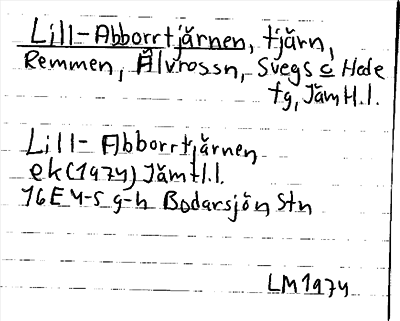 Lill-Abborrtjärnen, tjärn,
Remmen, Älvrossn, Svegs o Hede
tg, Jämtl.l.
Lill-Abborrtjärnen
ek(1974) Jämtl.l.
16E 4-5 g-h Bodarsjön Stn
LM1974